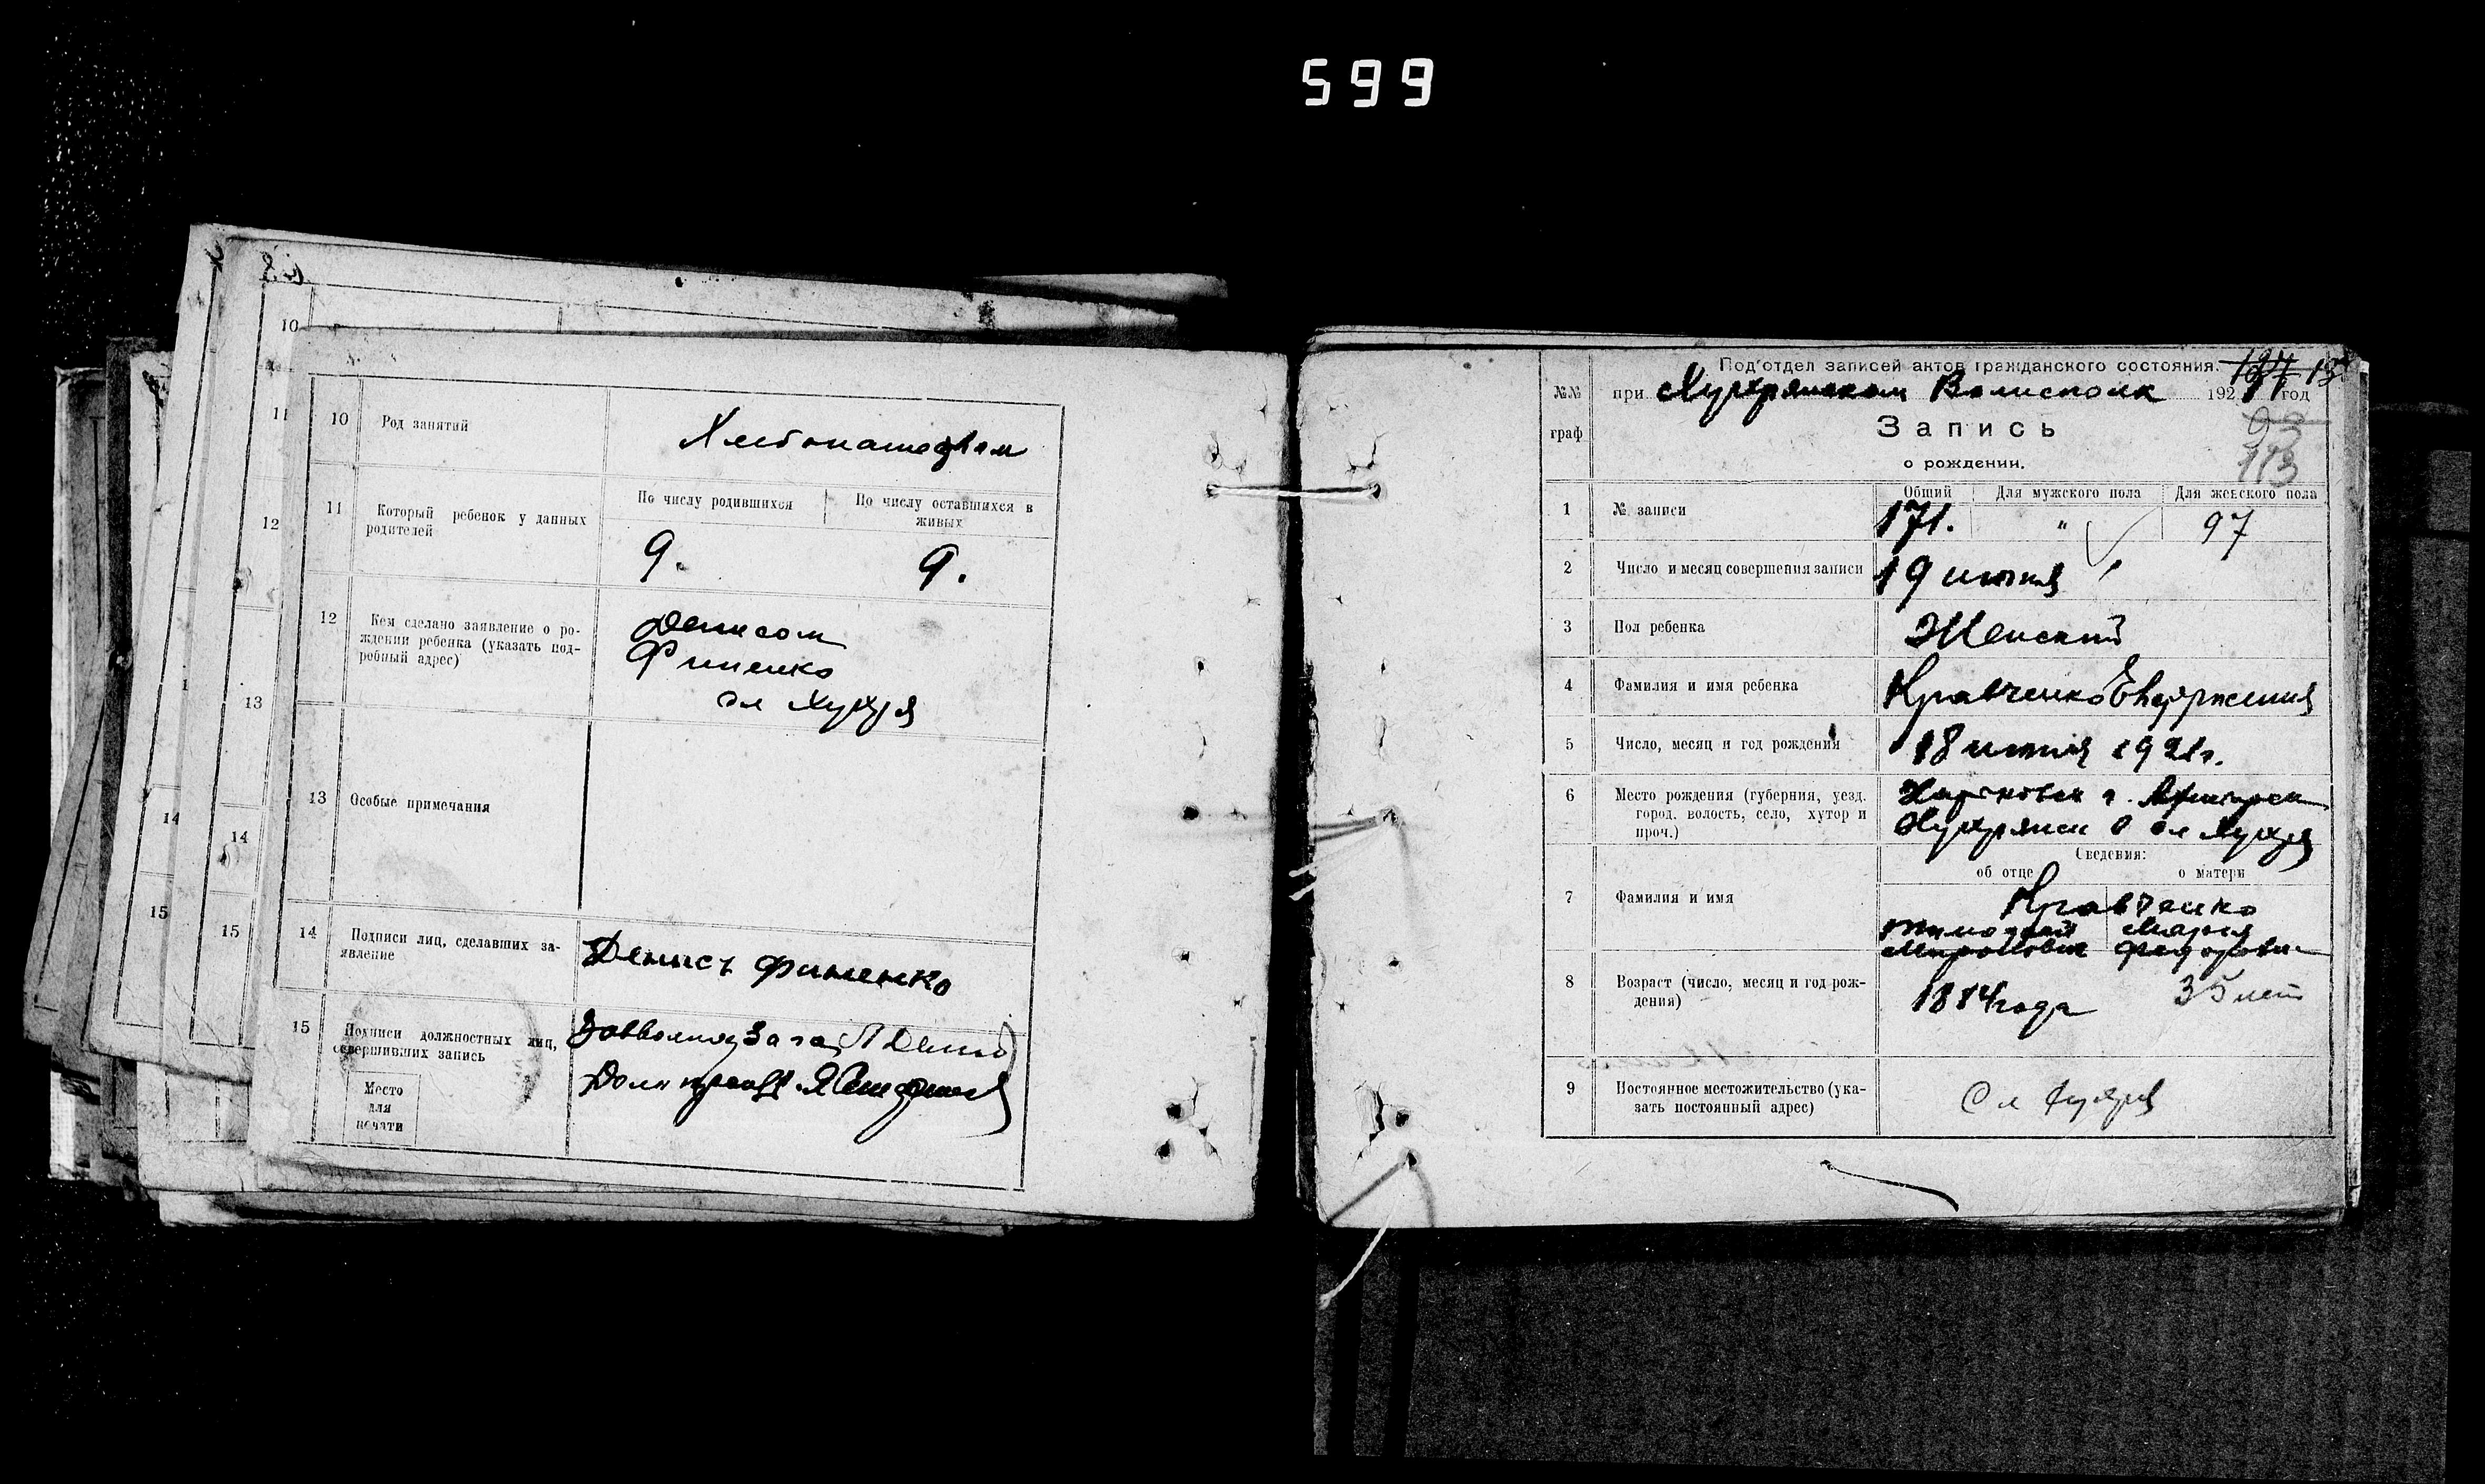 599
10 Род занятий
Хлебопашеством
11 Который ребенок у данных родителей
По числу родившихся По числу оставшихся в живых
9. 9.
12 Кем сделано заявление о ро-
ждении ребенка (указать под-
робный адрес)
Денисом
Фименко
сл Хухря
13 Особые примечания
14 Подписи лиц, сделавших за-
явление
Денисъ Фименко
15 Подписи должностных лиц,
совершивших запись
Место
для
печати
10
11
12
13
14
15
14
15
Под'отдел записей актов гражданского состояния.
№№ граф
при Хухрянском Волисполк 1921 год
Запись
о рождении.
113
1 № записи
Общий Для мужского пола Для женского пола
171. " 97
2 Число и месяц совершения записи 19 июня
3 Пол ребенка Женский
4 Фамилия и имя ребенка Кравченко
5 Число, месяц и год рождения 18 июня 1921г.
6 Место рождения (губерния, уезд.
город. волость, село, хутор и
проч.)
Хухрянск в сл Хухря
Сведения:
об отце о матери
7 Фамилия и имя
Кравченко
Тимофей Мария
Миронович Федоровн
8 Возраст (число, месяц и год рож-
дения)
35 лет
9 Постоянное местожительство (ука-
зать постоянный адрес)
Сл Хухря